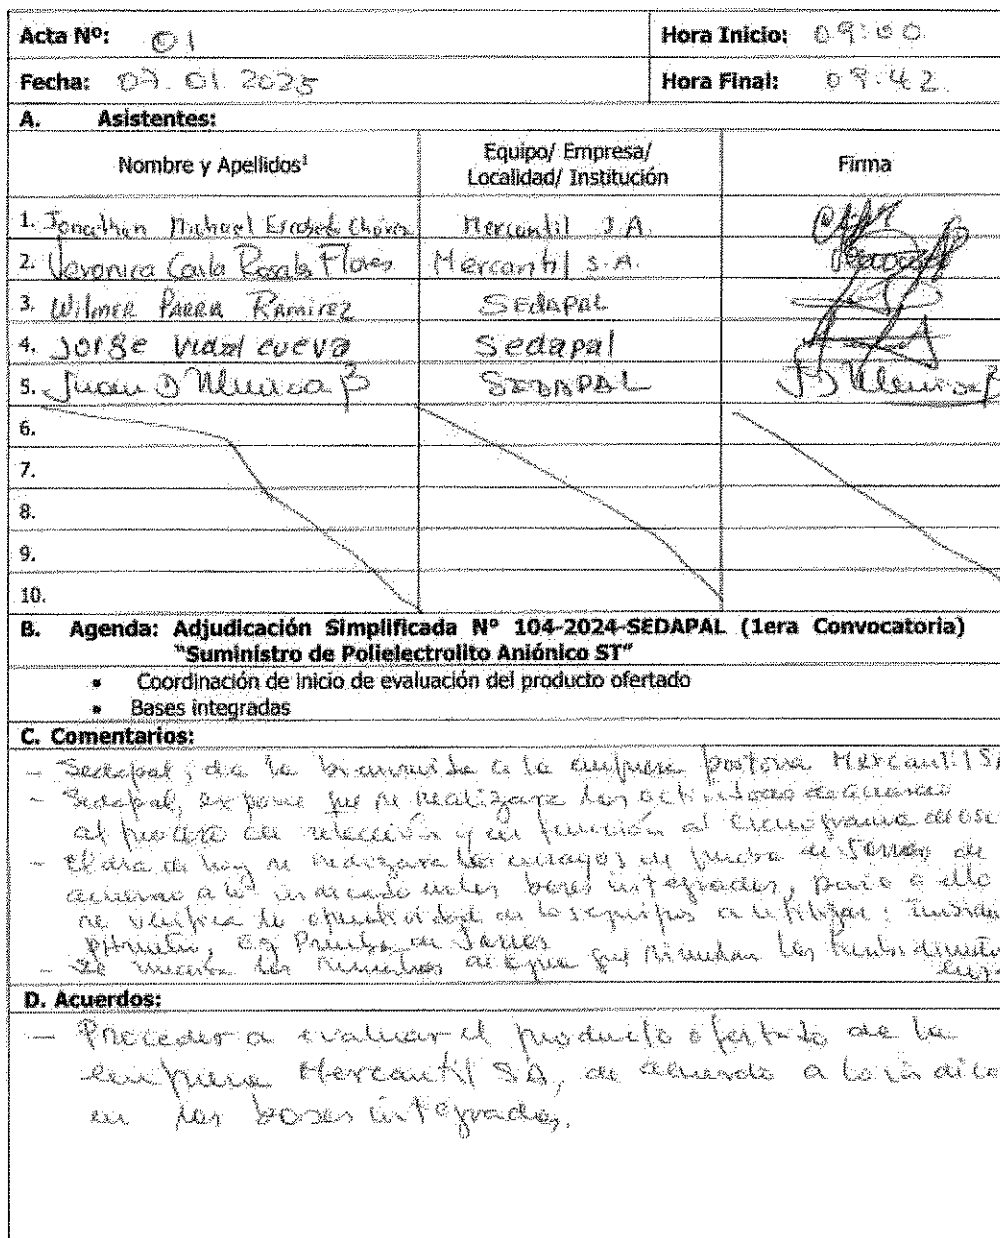 Acta Nº: 01
Hora Inicio: 09:00
Fecha: 07.01.2025
Hora Final: 09:42
A. Asistentes:
Nombre y Apellidos¹
Equipo/ Empresa/
Localidad/ Institución
Firma
1. Jonathan Michael Chávez
Mercantil S.A.
2. Veronica Carla Rosales Flores
Mercantil S.A.
3. Wilmer PARRA RAMIREZ
SEDAPAL
4. Jorge Vidal Cueva
Sedapal
5. Juan D
SEDAPAL
6.
7.
8.
9.
10.
B. Agenda: Adjudicación Simplificada Nº 104-2024-SEDAPAL (1era Convocatoria)
"Suministro de Polielectrolito Aniónico ST"
• Coordinación de inicio de evaluación del producto ofertado
• Bases integradas
C. Comentarios:
- Sedapal, da la bienvenida a la empresa postora Mercantil SA
- Sedapal, expone que se realizara las actividades de acuerdo
al proceso de selección y en función al cronograma
- El dia de hoy se realizara los ensayos de prueba de Jarras de
acuerdo a lo indicado en las bases integradas, para ello
se verifica la operatividad de los equipos a utilizar:
Prueba de Jarras
- Se las muestras de agua que
D. Acuerdos:
- Proceder a evaluar el producto ofertado de la
empresa Mercantil SA, de acuerdo a lo
en las bases integradas.